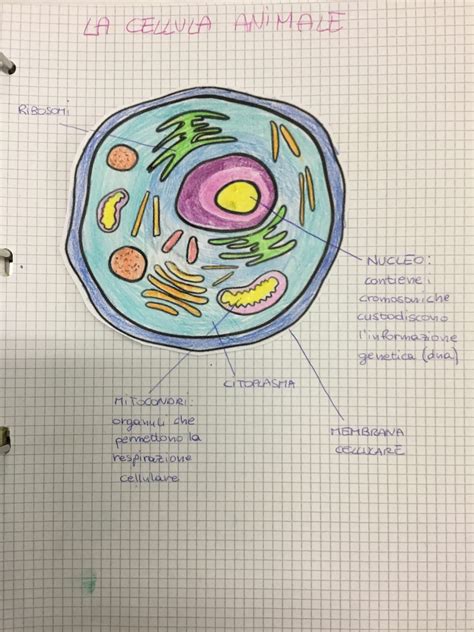 LA CELLULA ANIMALE
RIBOSOMI
NUCLEO:
contiene i
cromosomi che
custodiscono
l'informazione
genetica (dna)
CITOPLASMA
MITOCONDRI:
organuli che
permettono la
respirazione
cellulare
MEMBRANA
CELLULARE